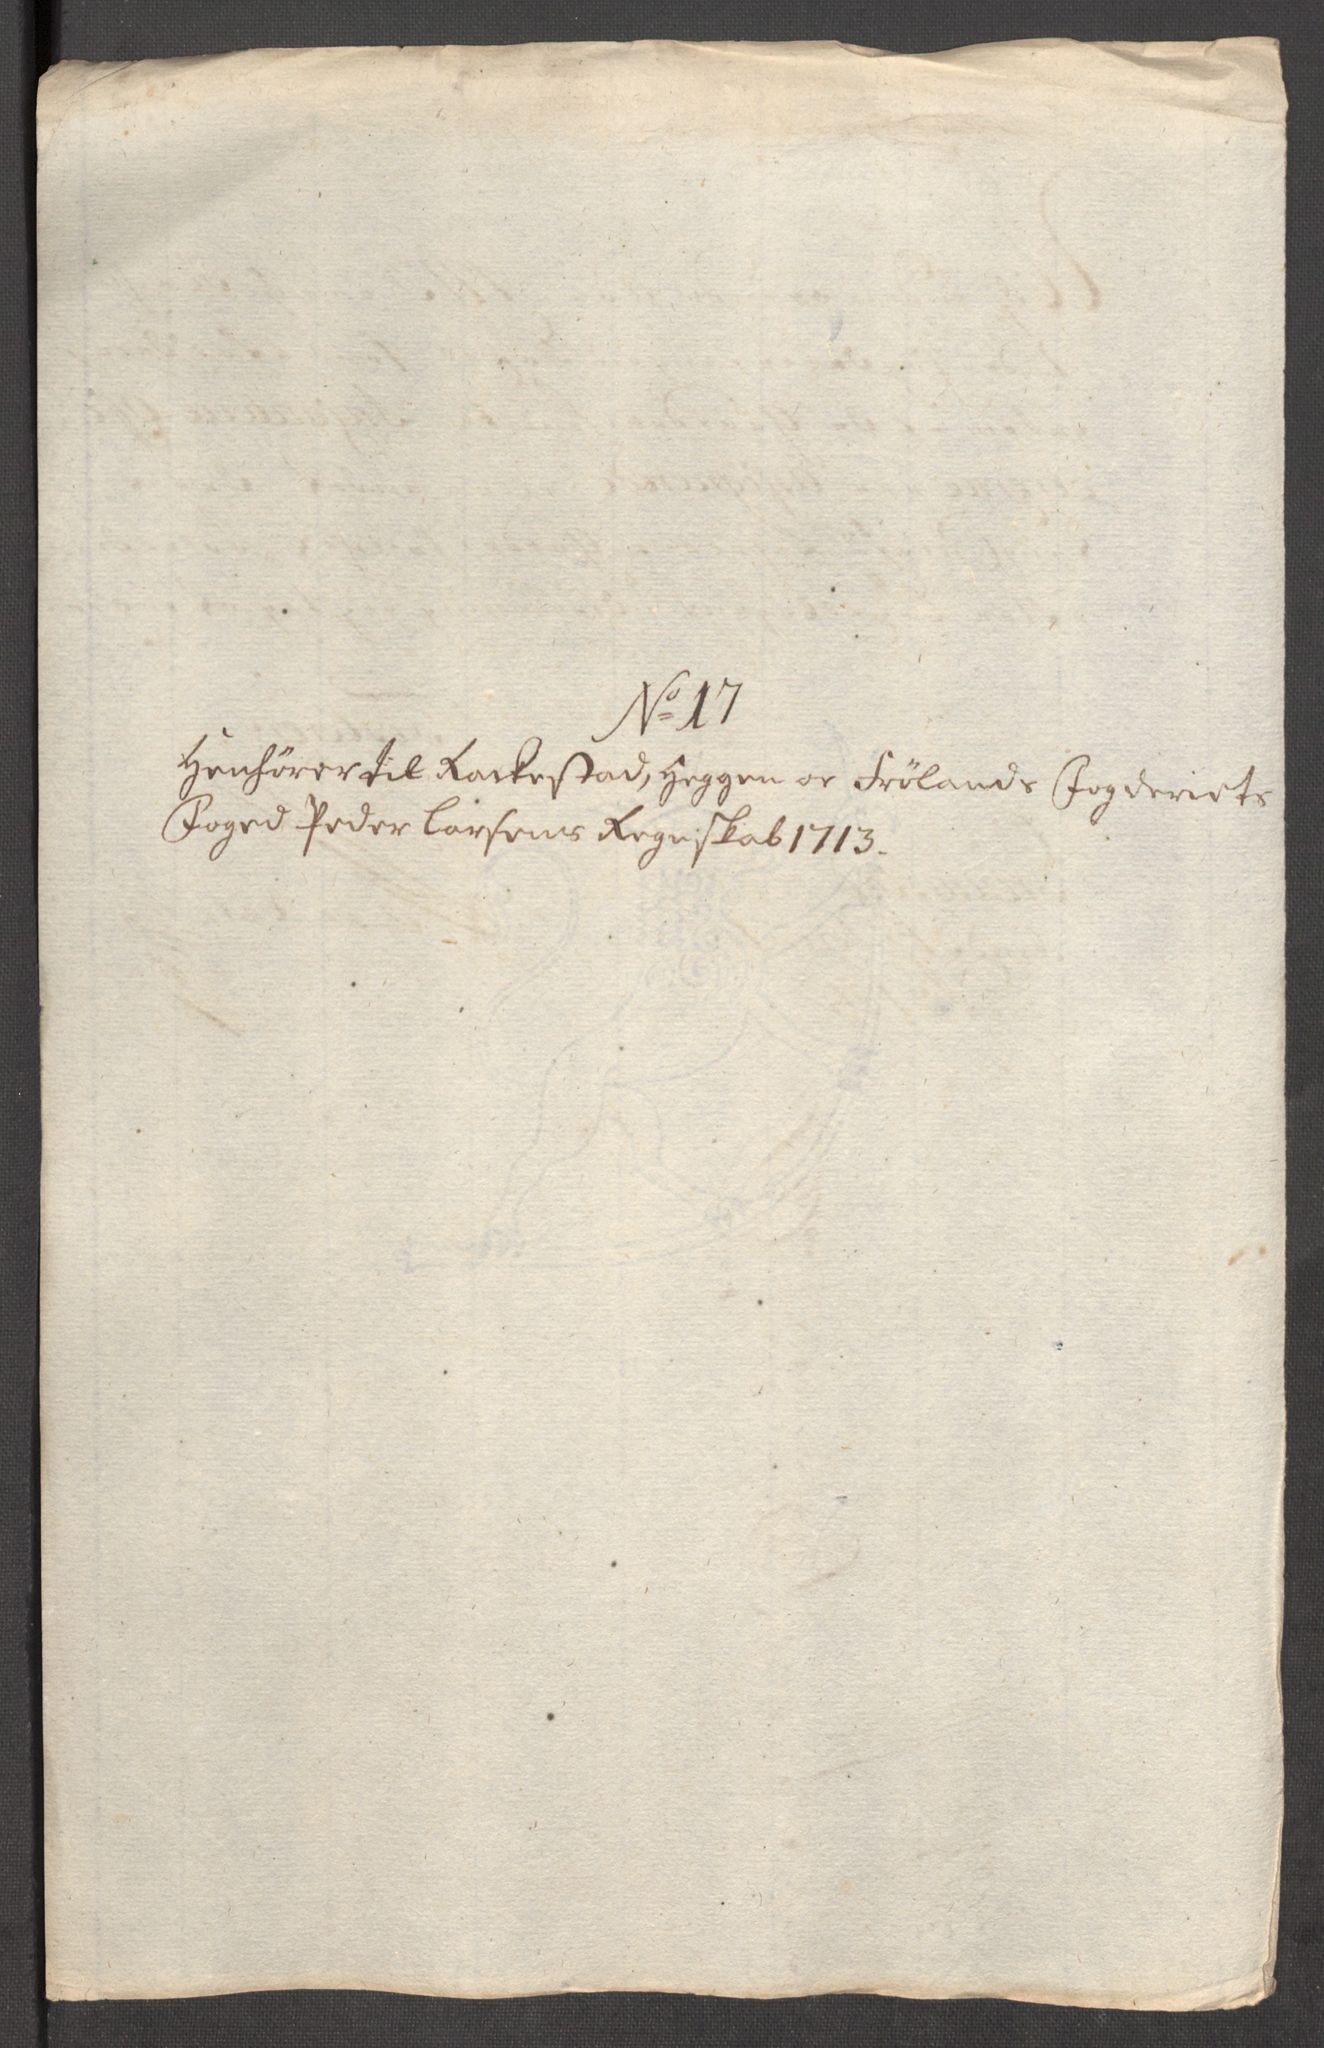 No 17
Henhörer til Rackestad, Heggen oc Frölands Fogderiets
Foged Peder Larsens Regnskab 1713.